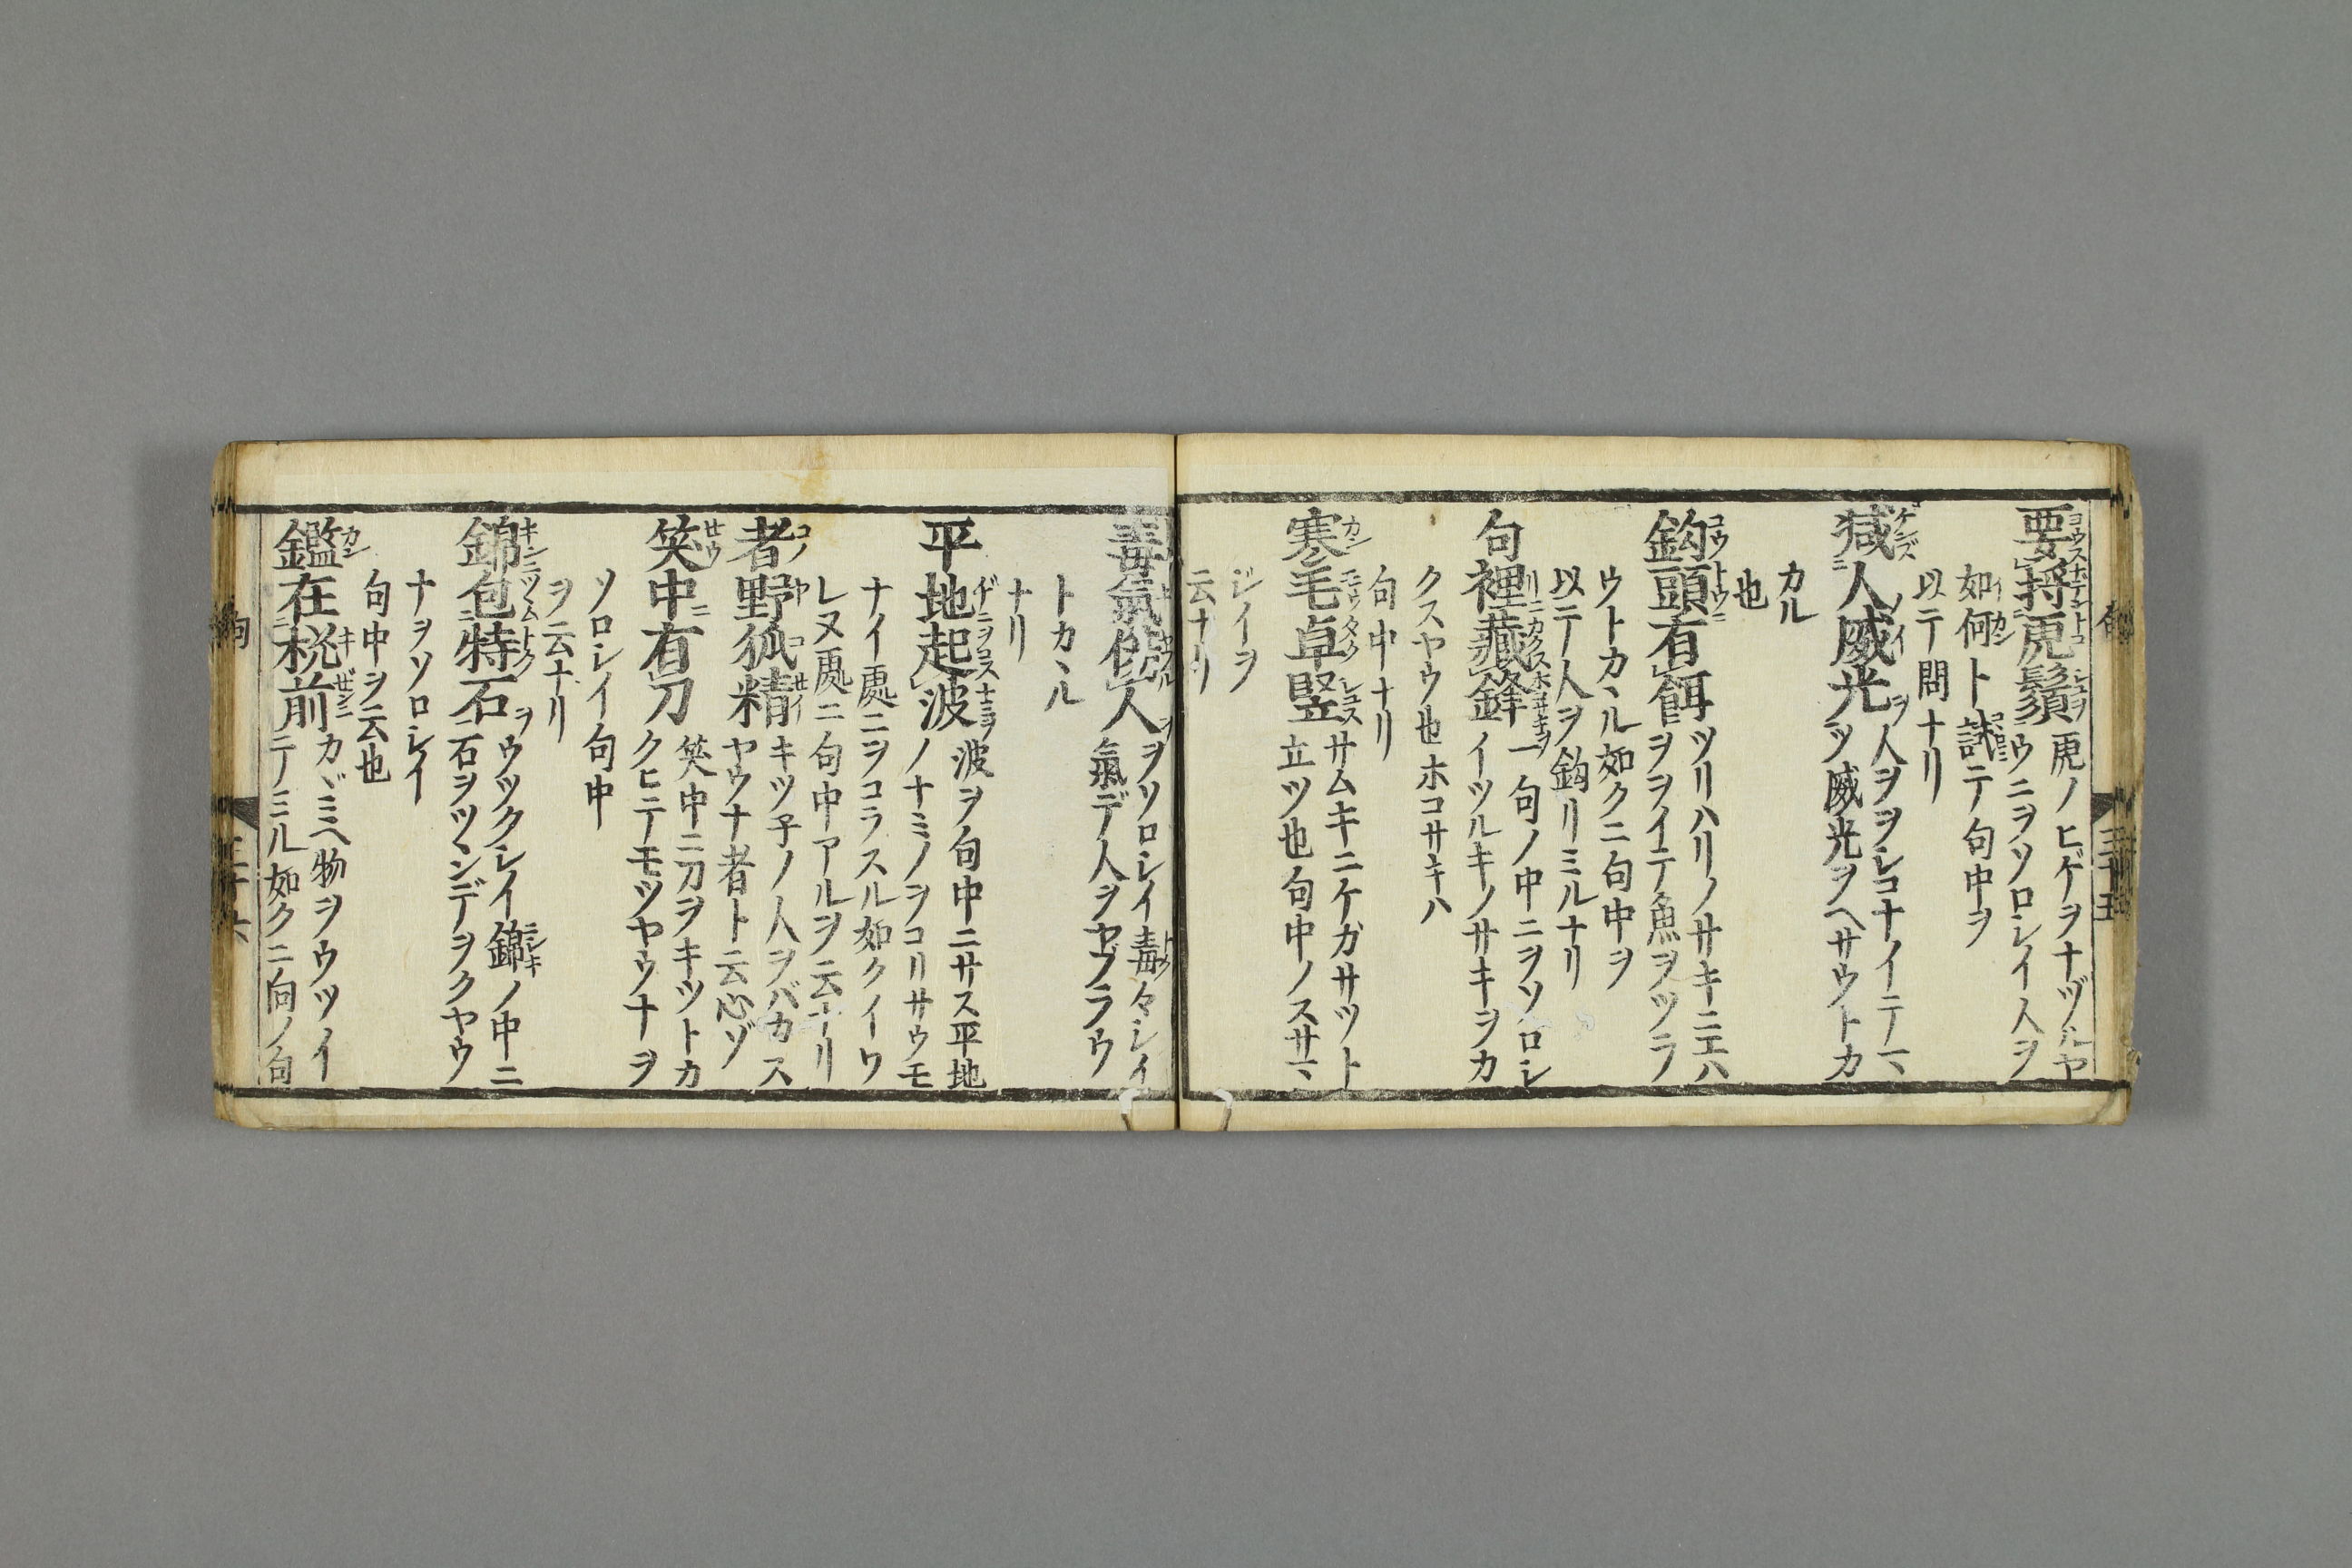 要捋虎鬚 虎ノヒゲヲナヅルヤ
ウニヲソロシイ人ヲ
如何ト試テ句中ヲ
以テ問ナリ
減人威光 人ヲヲシコナイテ
ツ威光ヲヘサウトカ
カル
也
鈎頭有餌 ツリハリノサキニエハ
ヲヲイテ魚ヲツラ
ウトカヽル如クニ句中ヲ
以テ人ヲ鈎リミルナリ
句裡藏鋒 一句ノ中ニヲソロシ
イツルキノサキヲカ
クスヤウ也ホコサキハ
句中ナリ
寒毛卓竪 サムキニケガサツト
立ツ也句中ノスサマ
ジイヲ
云ナリ
毒氣傷人 ヲソロシイ毒々シイ
氣デ人ヲヤブラウ
トカヽル
ナリ
平地起波 波ヲ句中ニサス平地
ノナミノヲコリサウモ
ナイ處ニヲコラスル如クイワ
レヌ處ニ句中アルヲ云ナリ
者野狐精 キツ子ノ人ヲバカス
ヤウナ者ト云心ゾ
笑中有刀 笑中ニ刀ヲキツトカ
クヒテモツヤウナヲ
ソロシイ句中
ヲ云ナリ
錦包特石 ヲウツクシイ錦ノ中ニ
石ヲツヽンデヲクヤウ
ナヲソロシイ
句中ヲ云也
鑑在机前 カヾミヘ物ヲウツイ
テミル如クニ向ノ句
三十五
三十六